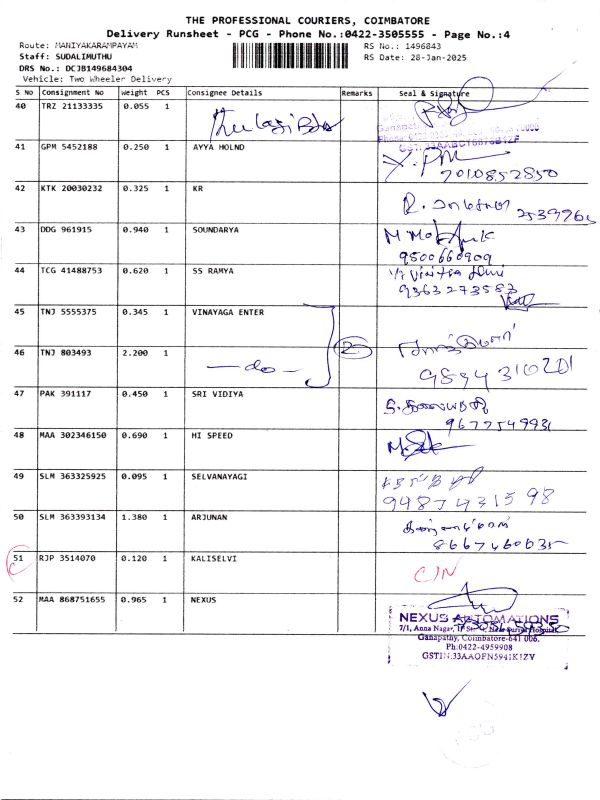 THE PROFESSIONAL COURIERS, COIMBATORE
Delivery Runsheet - PCG - Phone No.:0422-3505555 - Page No.:4
Route: MANIYAKARAMPAYAM RS No.: 1496843
Staff: SUDALIMUTHU RS Date: 28-Jan-2025
DRS No.: DCJB149684304
Vehicle: Two Wheeler Delivery
S No Consignment No Weight PCS Consignee Details Remarks Seal & Signature
40 TRZ 21133335 0.055 1
41 GPM 5452188 0.250 1 AYYA HOLND
7010852850
42 KTK 20030232 0.325 1 KR
43 DDG 961915 0.940 1 SOUNDARYA
9500660909
44 TCG 41488753 0.620 1 SS RAMYA
9363273583
45 TNJ 5555375 0.345 1 VINAYAGA ENTER
2
46 TNJ 803493 2.200 1 -do-
9894310201
47 PAK 391117 0.450 1 SRI VIDIYA
9677549931
48 MAA 302346150 0.690 1 HI SPEED
49 SLM 363325925 0.095 1 SELVANAYAGI
9487431598
50 SLM 363393134 1.380 1 ARJUNAN
51 RJP 3514070 0.120 1 KALISELVI C/N
52 MAA 868751655 0.965 1 NEXUS
NEXUS AUTOMATIONS
7/1, Anna Nagar,
Ganapathy, Coimbatore-641 006.
Ph:0422-4959908
GSTIN:33AAOFN5941K1ZV